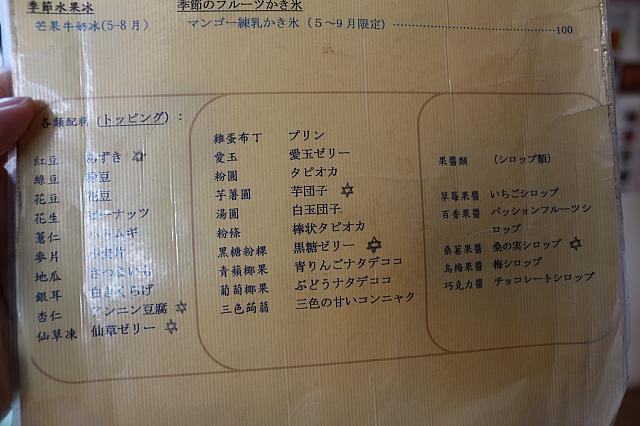 季節水果冰 季節のフルーツかき氷
芒果牛奶冰(5-8月) マンゴー練乳かき氷（5～9月限定）............100
各類配料（トッピング）：
紅豆 あずき ✡
綠豆 豆
花豆 花豆
花生 ピーナッツ
薏仁 ハトムギ
麥片 片
地瓜 さつまいも
銀耳 白きくらげ
杏仁 アンニン豆腐 ✡
仙草凍 仙草ゼリー ✡
雞蛋布丁 プリン
愛玉 愛玉ゼリー
粉圓 タピオカ
芋薯圓 芋団子 ✡
湯圓 白玉団子
粉條 棒状タピオカ
黑糖粉粿 黒糖ゼリー ✡
青蘋椰果 青りんごナタデココ
葡萄椰果 ぶどうナタデココ
三色蒟蒻 三色の甘いコンニャク
果醬類 （シロップ類）
草莓果醬 いちごシロップ
百香果醬 パッションフルーツシ
ロップ
桑葚果醬 桑の実シロップ ✡
烏梅果醬 梅シロップ
巧克力醬 チョコレートシロップ